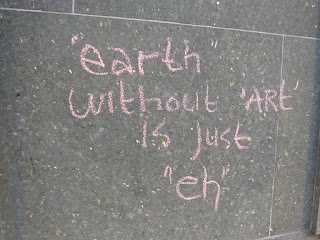 "earth"
without 'ART'
is just
"eh"